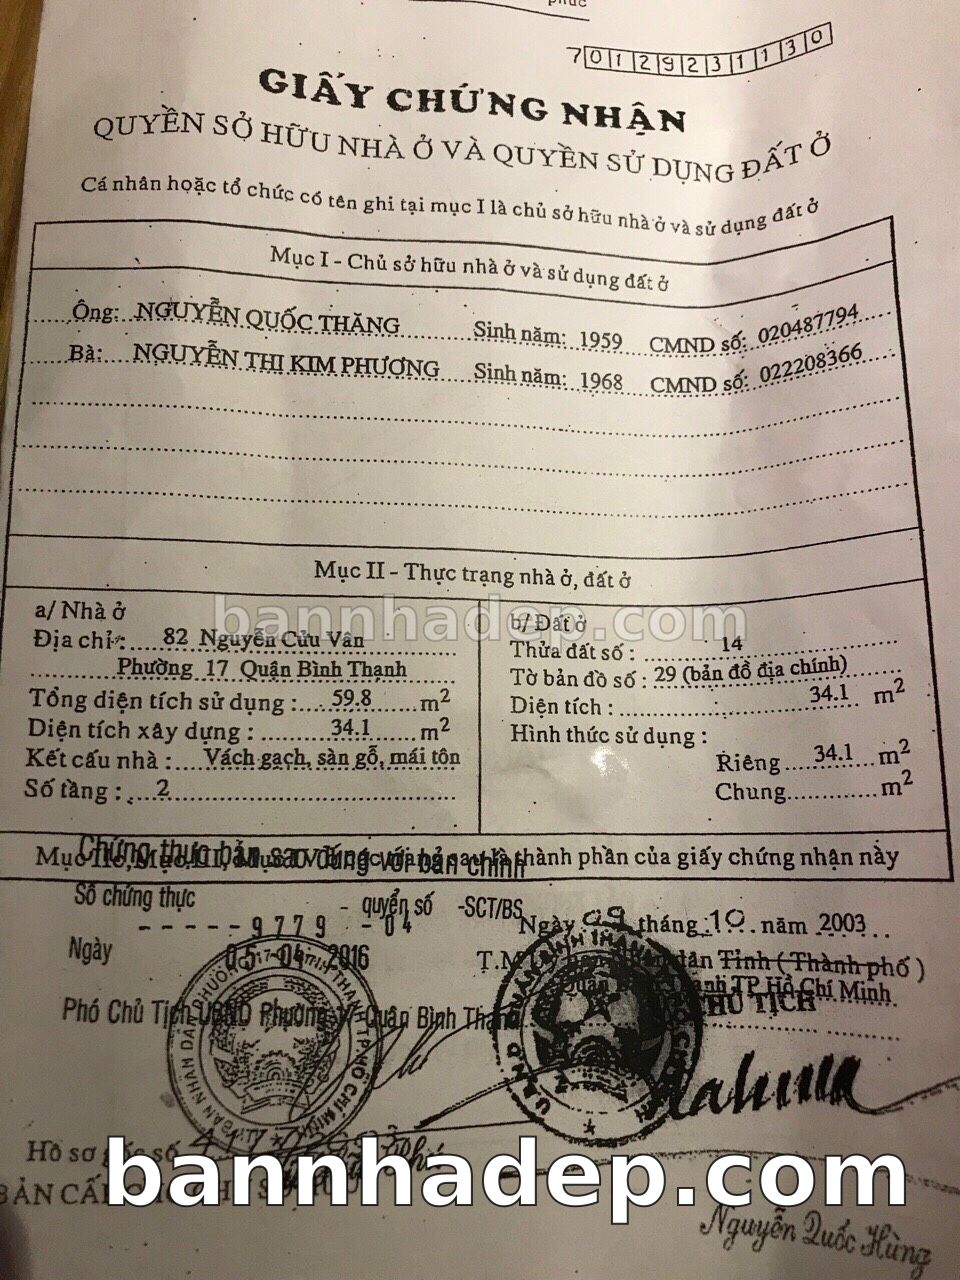 phúc
70129231130
GIẤY CHỨNG NHẬN
QUYỀN SỞ HỮU NHÀ Ở VÀ QUYỀN SỬ DỤNG ĐẤT Ở
Cá nhân hoặc tổ chức có tên ghi tại mục I là chủ sở hữu nhà ở và sử dụng đất ở
Mục I - Chủ sở hữu nhà ở và sử dụng đất ở
Ông: NGUYỄN QUỐC THĂNG Sinh năm: 1959 CMND số: 020487794
Bà: NGUYỄN THỊ KIM PHƯƠNG Sinh năm: 1968 CMND số: 022208366
Mục II - Thực trạng nhà ở, đất ở
bannhadep.com
a/ Nhà ở
Địa chỉ: 82 Nguyễn Cửu Vân
Phường 17 Quận Bình Thạnh
Tổng diện tích sử dụng: 59.8 m2
Diện tích xây dựng: 34.1 m2
Kết cấu nhà: Vách gạch, sàn gỗ, mái tôn
Số tầng: 2
b/ Đất ở
Thửa đất số: 14
Tờ bản đồ số: 29 (bản đồ địa chính)
Diện tích: 34.1 m2
Hình thức sử dụng:
Riêng 34.1 m2
Chung m2
là thành phần của giấy chứng nhận này
Chứng thực bản sao đúng với bản chính
Số chứng thực 9779 quyển số 04 -SCT/BS
Ngày 05 -04- 2016
Phó Chủ Tịch UBND Phường 17 Quận Bình Thạnh
Ngày 09 tháng 10 năm 2003
Tỉnh (Thành phố)
TP Hồ Chí Minh
CHỦ TỊCH
Hồ sơ gốc số
bannhadep.com
Nguyễn Quốc Hùng